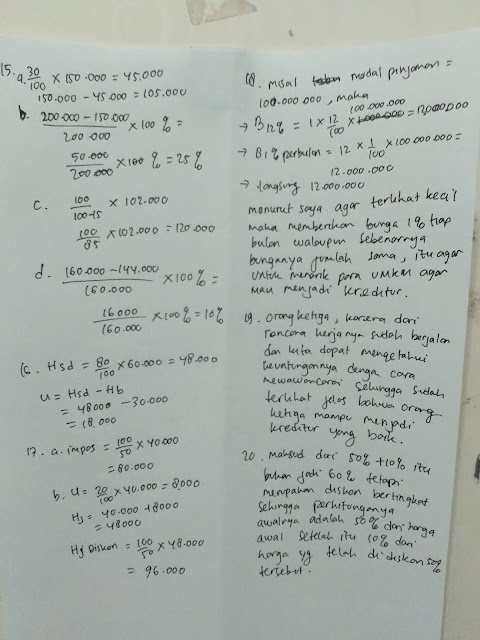 15. a. 30/100 × 150.000 = 45.000
150.000 - 45.000 = 105.000
b. 200.000 - 150.000 / 200.000 × 100 % =
50.000 / 200.000 × 100 % = 25 %
c. 100 / 100-15 × 102.000
100/85 × 102.000 = 120.000
d. (160.000 - 144.000) / 160.000 × 100 % =
16000 / 160.000 × 100 % = 10 %
16. Hsd = 80/100 × 60.000 = 48.000
u = Hsd - Hb
= 48000 - 30.000
= 18.000
17. a. impas = 100/50 × 40.000
= 80.000
b. u = 20/100 × 40.000 = 8.000
Hj = 40.000 + 8000
= 48000
Hj Diskon = 100/50 × 48.000
= 96.000
18. misal modal pinjaman =
100.000.000, maka
→ B 12% = 1 × 12/100 × 100.000.000 = 12.000.000
→ B 1% perbulan = 12 × 1/100 × 100.000.000 =
12.000.000
→ langsung 12.000.000
menurut saya agar terlihat kecil
maka memberikan bunga 1% tiap
bulan walaupun sebenarnya
bunganya jumlah sama, itu agar
untuk menarik para UMKM agar
mau menjadi kreditur.
19. orang ketiga, karena dari
rancana kerjanya sudah berjalan
dan kita dapat mengetahui
keuntungannya dengan cara
mewawancarai sehingga sudah
terlihat jelas bahwa orang
ketiga mampu menjadi
kreditur yang baik.
20. Maksud dari 50% + 10% itu
bukan jadi 60% tetapi
merupakan diskon bertingkat
sehingga perhitungannya
awalnya adalah 50% dari harga
awal setelah itu 10% dari
harga yg telah di diskon 50%
tersebut.